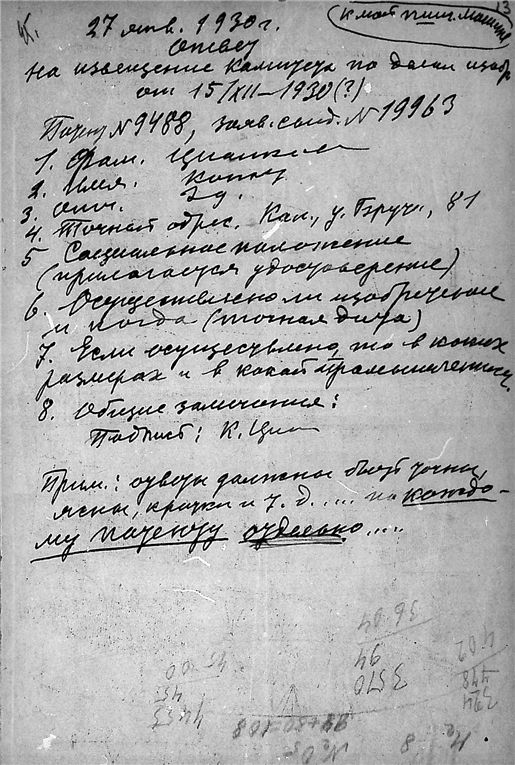 13
(к моей пиш. машине)
27 янв. 1930 г.
Ответ
на извещение Комитета по делам изобр.
от 15/XII–1930 (?)
Патент № 9488, заяв. свид. № 19963
1. Фам. Циолков
2. Имя. Конст
3. Отч. Эд.
4. Точный адрес. Кал., у. Бруч., 81
5 Социальное положение
(прилагается удостоверение)
6. Осуществлено ли изобретение
и когда (точная дата)
7. Если осуществлено, то в каких
размерах и в какой промышленности.
8. Общие замечания:
Подпись: К. Цио
Прим.: ответы должны быть точны,
ясны, кратки и т. д. .... по каждо-
му патенту отдельно....
36 04
94
3510
45 00
45
4 02
478
324
8